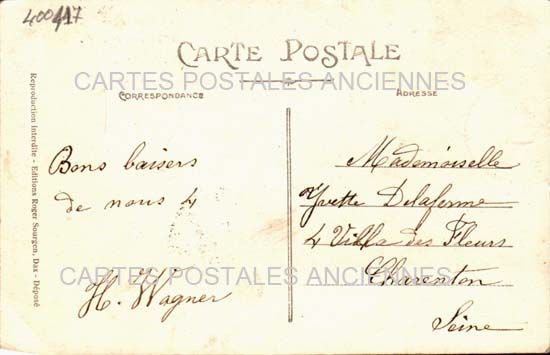 400417
CARTE POSTALE
CARTES POSTALES ANCIENNES
CORRESPONDANCE
ADRESSE
Reproduction interdite - Editions Roger Sourgen, Dax - Déposé
Bons baisers
de nous 4
H. Wagner
Mademoiselle
Yvette Delaforme
4 Villa des Fleurs
Charenton
Seine
CARTES POSTALES ANCIENNES